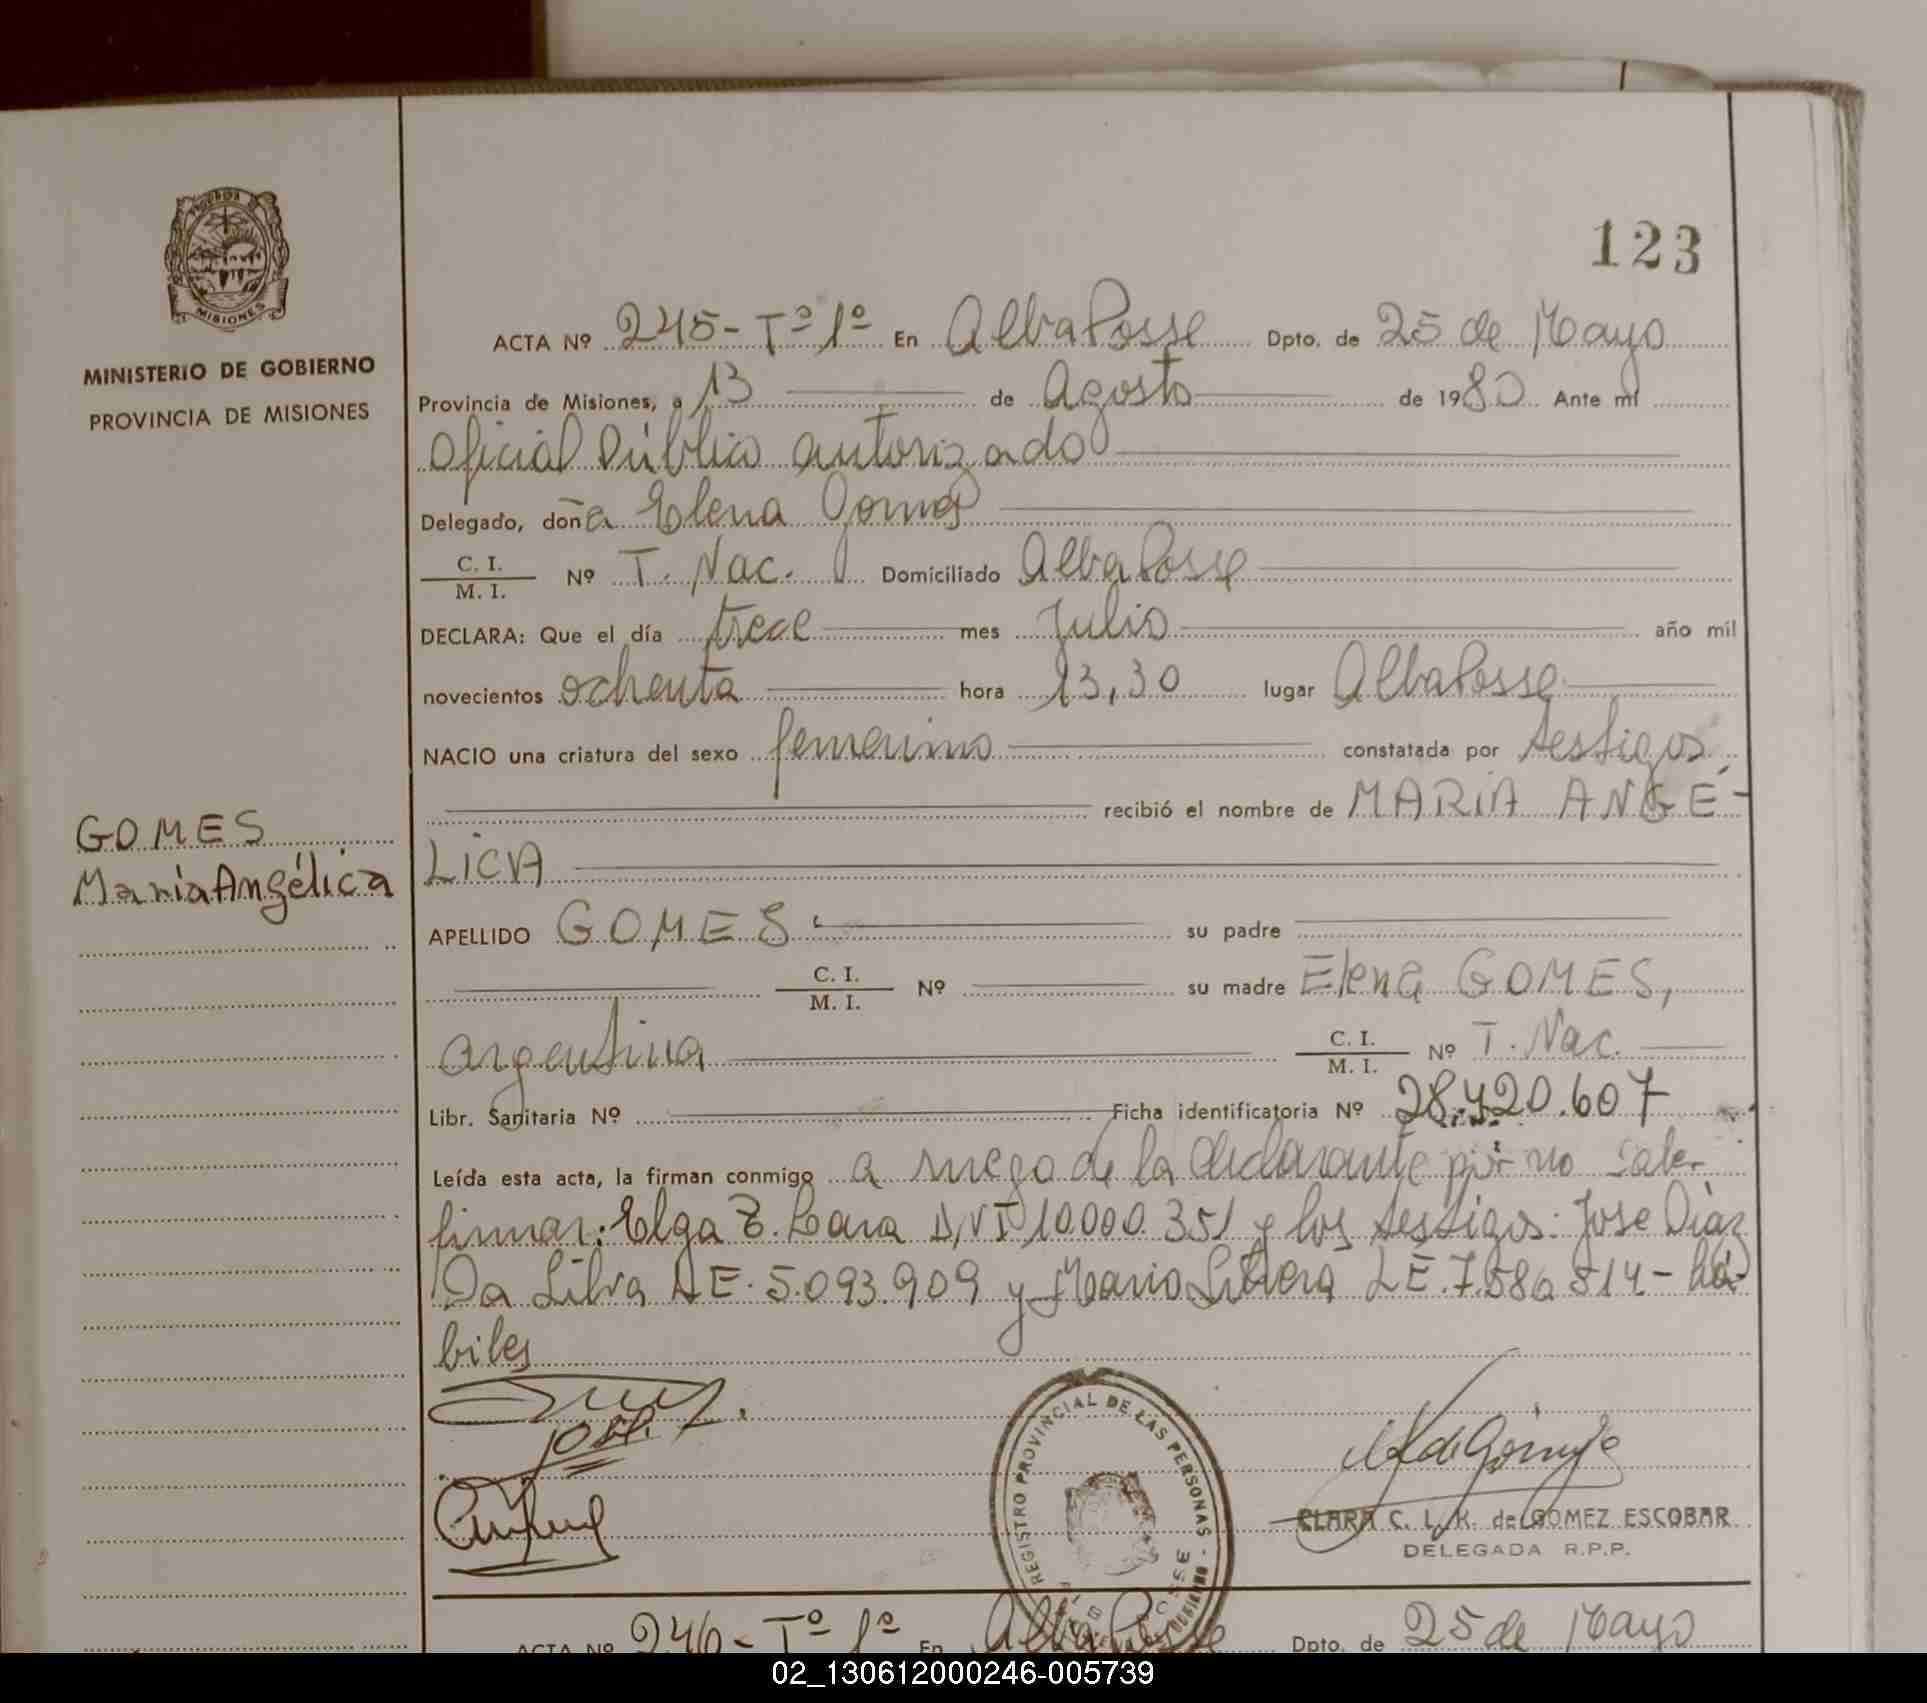 123
PROVINCIA DE
MISIONES
MINISTERIO DE GOBIERNO
PROVINCIA DE MISIONES
GOMES
María Angélica
ACTA Nº 245-Tº 1º En Alba Posse Dpto. de 25 de Mayo
Provincia de Misiones, a 13 de Agosto de 1980 Ante mí
Oficial Público autorizado
Delegado, doña Elena Gomes
C. I. / M. I. Nº T. Nac. Domiciliado Alba Posse
DECLARA: Que el día trece mes Julio año mil
novecientos ochenta hora 13,30 lugar Alba Posse
NACIO una criatura del sexo femenino constatada por testigos
recibió el nombre de MARIA ANGÉ-
LICA
APELLIDO GOMES su padre
C. I. / M. I. Nº su madre Elena GOMES,
argentina C. I. / M. I. Nº T. Nac.
Libr. Sanitaria Nº Ficha identificatoria Nº 28.420.607
Leída esta acta, la firman conmigo a ruego de la declarante por no saber
firmar: Elga Lara 10.000.351 y los testigos: Jose Díaz
Da Silva 5.093.909 y Mario L.E. 7.586.814 - há-
biles
REGISTRO PROVINCIAL DE LAS PERSONAS
CLARA C. L. K. de GOMEZ ESCOBAR
DELEGADA R.P.P.
ACTA Nº 246-Tº 1º En Alba Posse Dpto. de 25 de Mayo
02_130612000246-005739